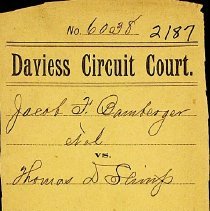 No. 6038 2187
Daviess Circuit Court.
Jacob F. Bamberger
vs.
Thomas D. Slimp